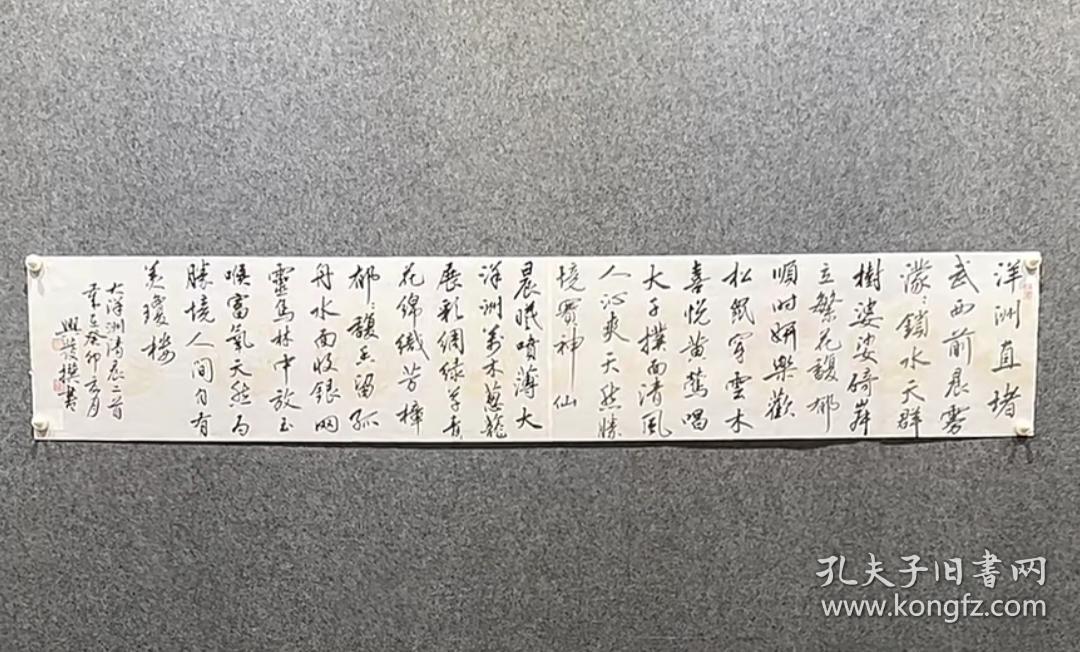 洋洲直堵
武西前晨雾
濛:鎖水天群
樹婆娑碕岸
立繁花馥郁
順时妍樂歡
松鼠穿雲木
喜悦黄鶯唱
大千撲面清風
人沁爽天然勝
境賽神仙
晨曦喷薄大
洋洲萬木葱蘢
展彩綢绿草
花绵織芳樟
郁:馥玉留孤
舟水面收銀网
靈鳥林中放玉
喉富氧天然为
勝境人间自有
美瓊楼
大洋洲清晨二首
歲在癸卯亥月
撰書
孔夫子旧書网
www.kongfz.com